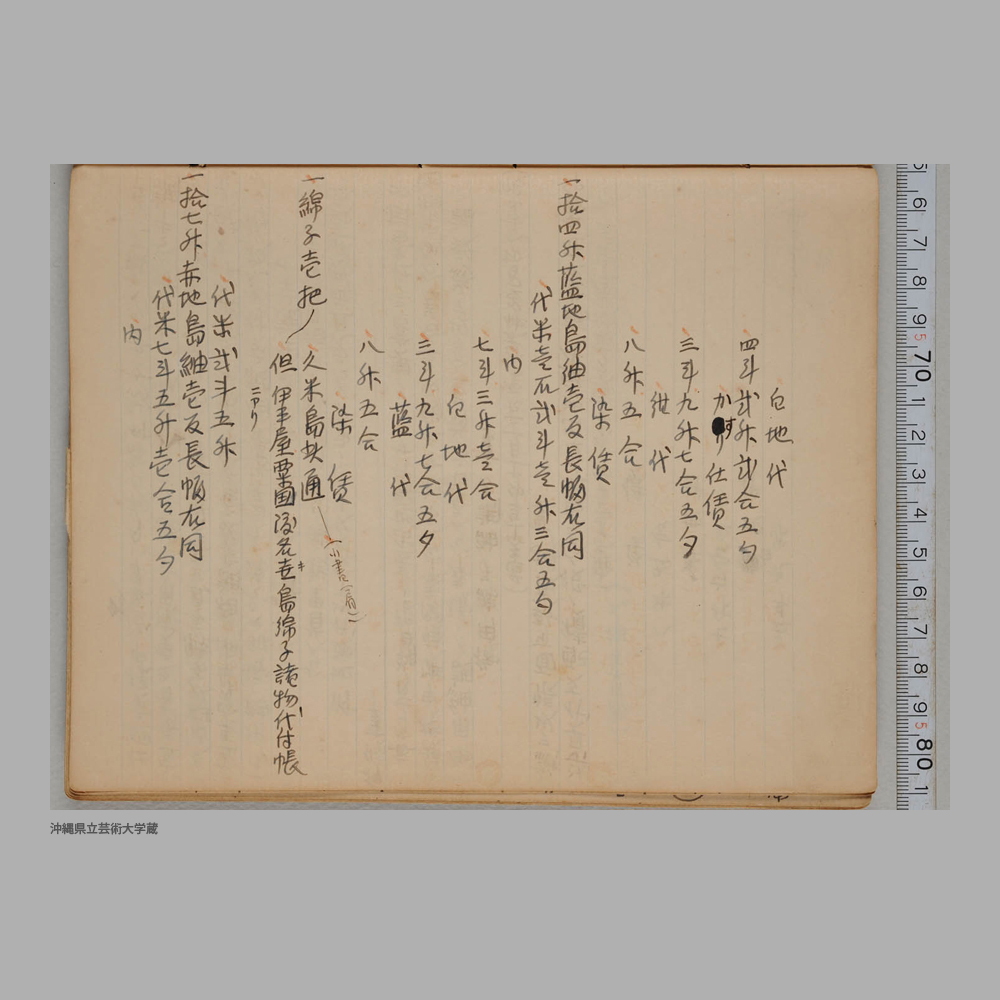 白地代
四斗弐升弐合五勺
かすり仕賃
三斗九升七合五夕
紺代
八升五合
染賃
一拾四升藍地島紬壱反長幅右同
代米壱石弐斗壱升三合五勺
内
七斗三升壱合
白地代
三斗九升七合五夕
藍代
八升五合
染賃
久米島共通
(小書(眉))
一綿子壱把
但伊平屋粟国渡名喜島綿子諸物代付帳
キ
ニアリ
代米弐斗五升
一拾七升赤地島紬壱反長幅右同
代米七斗五升壱合五夕
内
沖縄県立芸術大学蔵
5 6 7 8 9 5 70 1 2 3 4 5 6 7 8 9 5 80 1